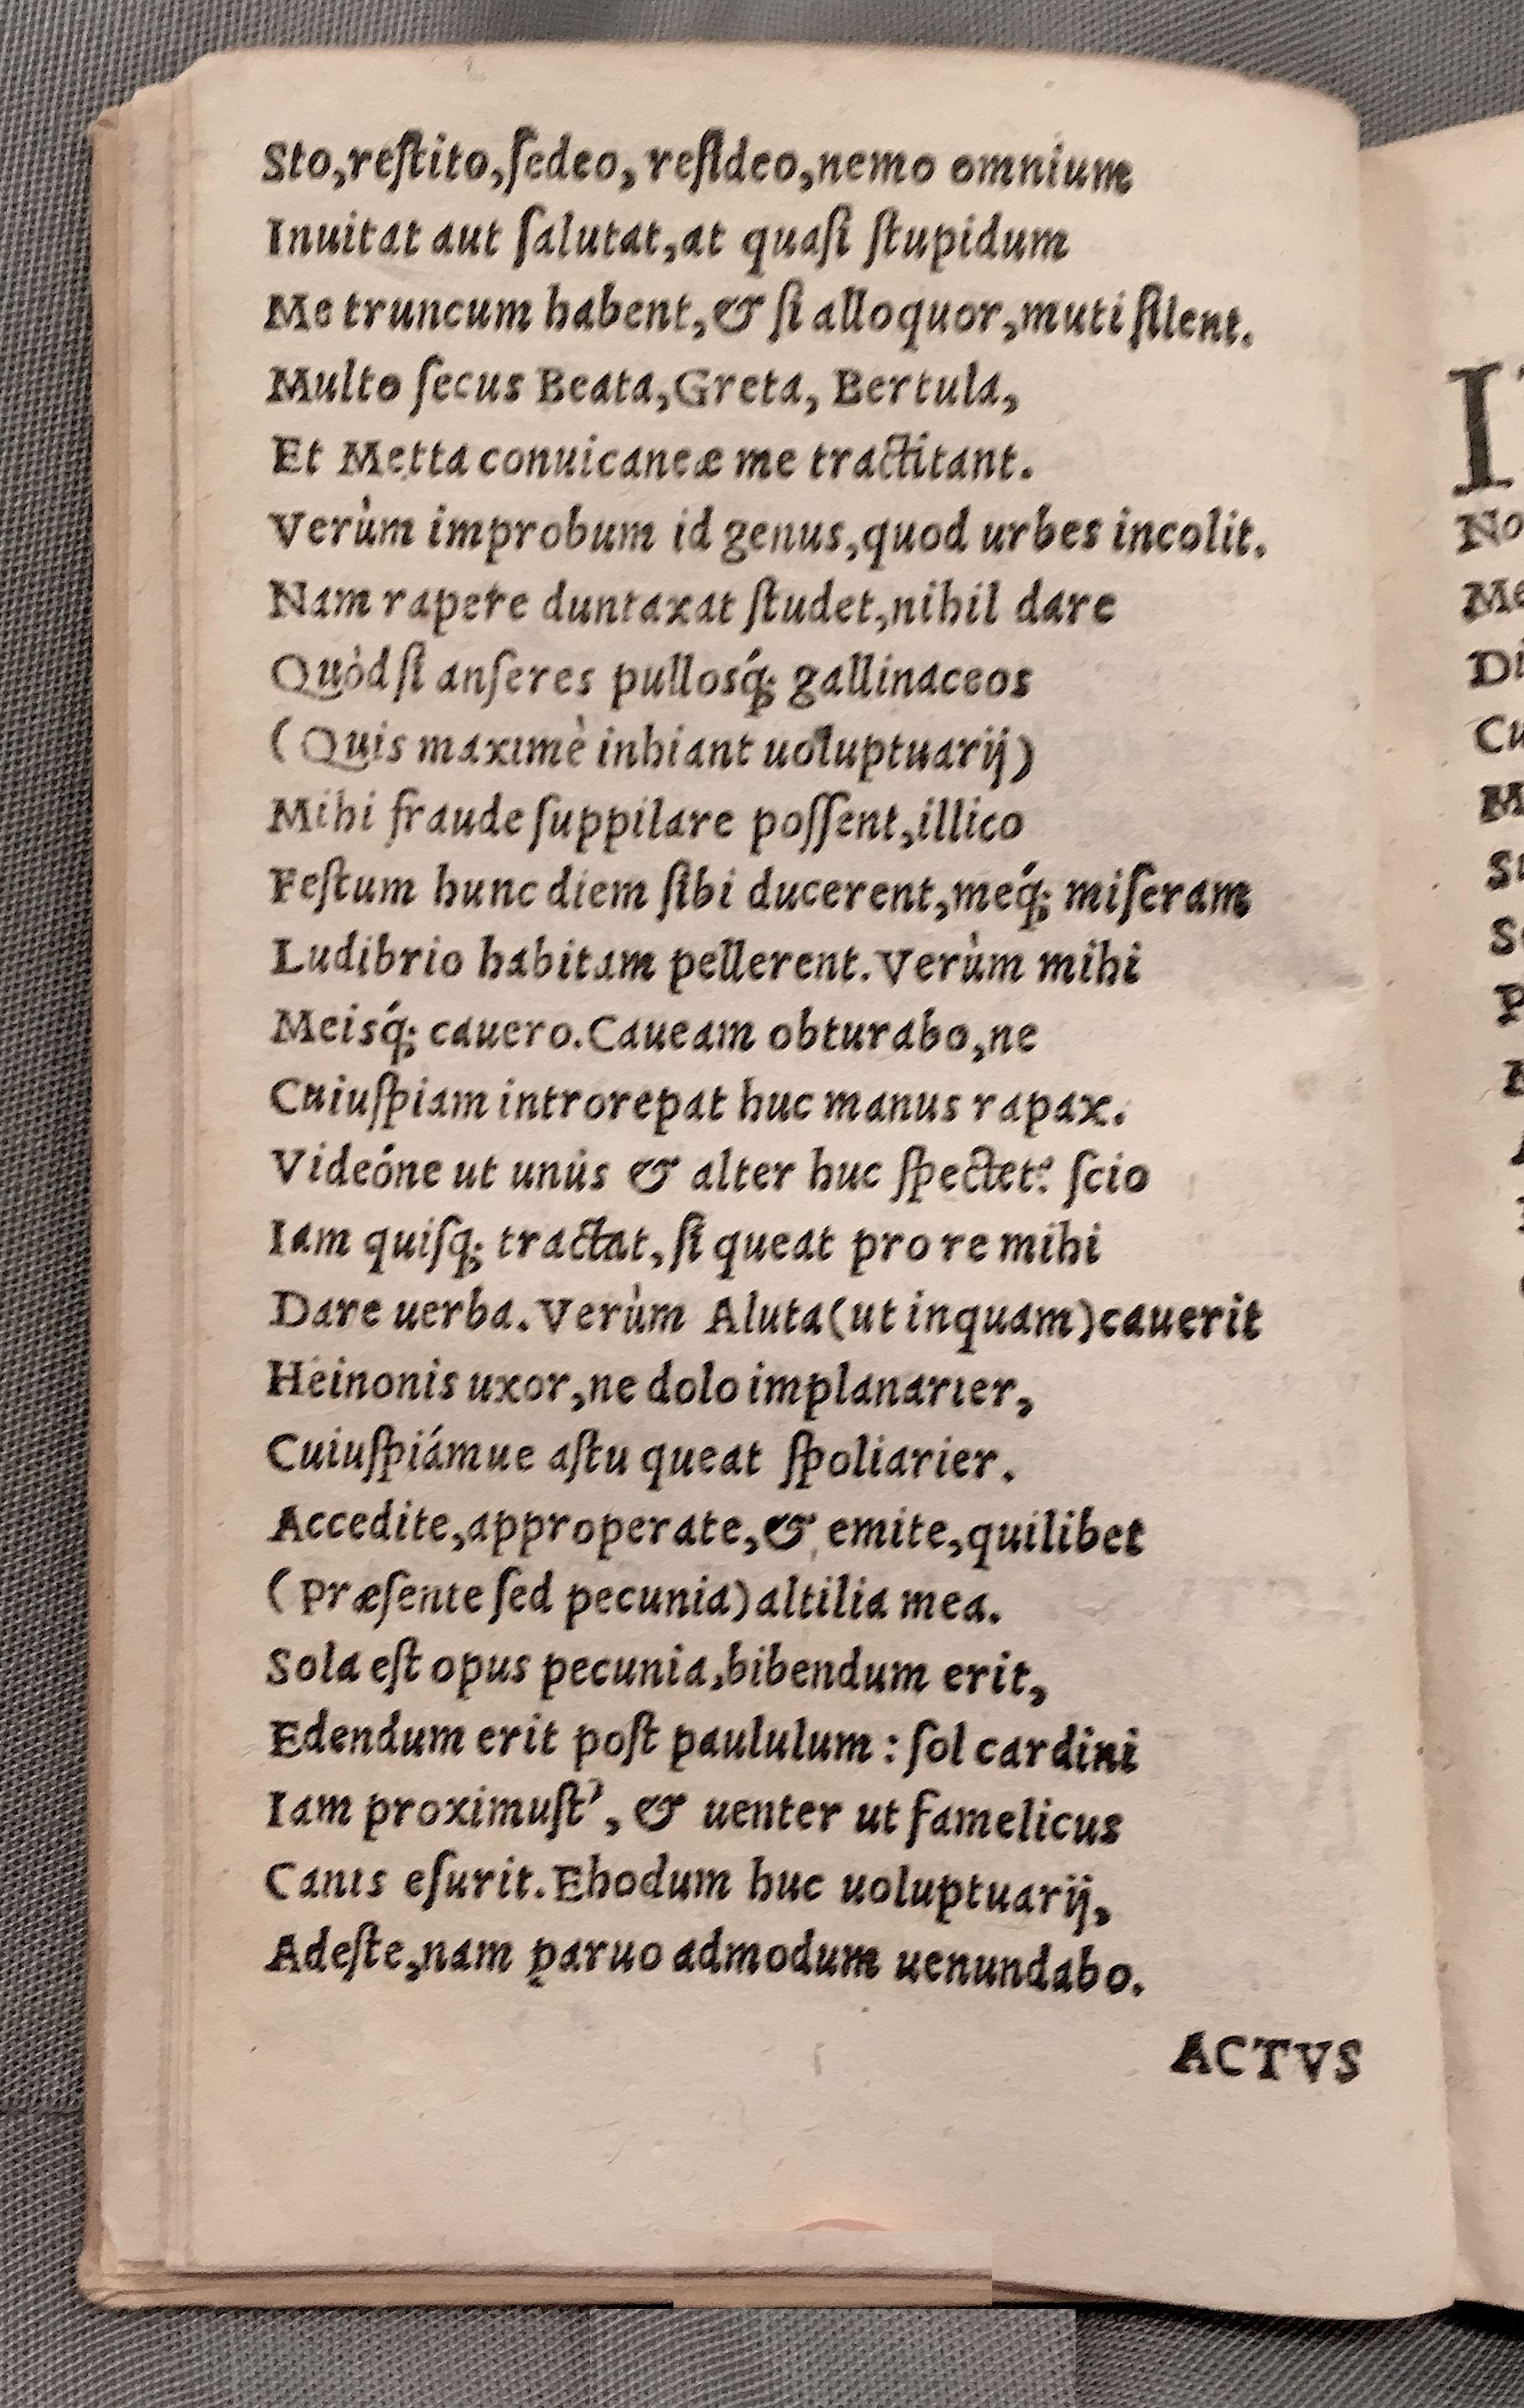 Sto,reſtito,ſedeo, reſideo,nemo omnium
Inuitat aut ſalutat,at quaſi ſtupidum
Me truncum habent,& ſi alloquor,muti ſilent.
Multo ſecus Beata,Greta, Bertula,
Et Metta conuicaneæ me tractitant.
Verùm improbum id genus,quod urbes incolit.
Nam rapere duntaxat ſtudet,nihil dare
Quòd ſi anſeres pullosq́; gallinaceos
(Quis maximè inhiant uoluptuarij)
Mihi fraude ſuppilare poſſent,illico
Feſtum hunc diem ſibi ducerent,meq́; miſeram
Ludibrio habitam pellerent.Verùm mihi
Meisq́; cauero.Caueam obturabo,ne
Cuiuſpiam introrepat huc manus rapax.
Videóne ut unus & alter huc ſpectet? ſcio
Iam quiſq; tractat,ſi queat pro re mihi
Dare uerba.Verùm Aluta(ut inquam)cauerit
Heinonis uxor,ne dolo implanarier,
Cuiuſpiámue aſtu queat ſpoliarier.
Accedite,approperate,& emite,quilibet
(Præſente ſed pecunia)altilia mea.
Sola eſt opus pecunia,bibendum erit,
Edendum erit poſt paululum : ſol cardini
Iam proximuſt', & uenter ut famelicus
Canis eſurit.Ehodum huc uoluptuarij,
Adeſte,nam paruo admodum uenundabo.
ACTVS
No
Me
Di
Cu